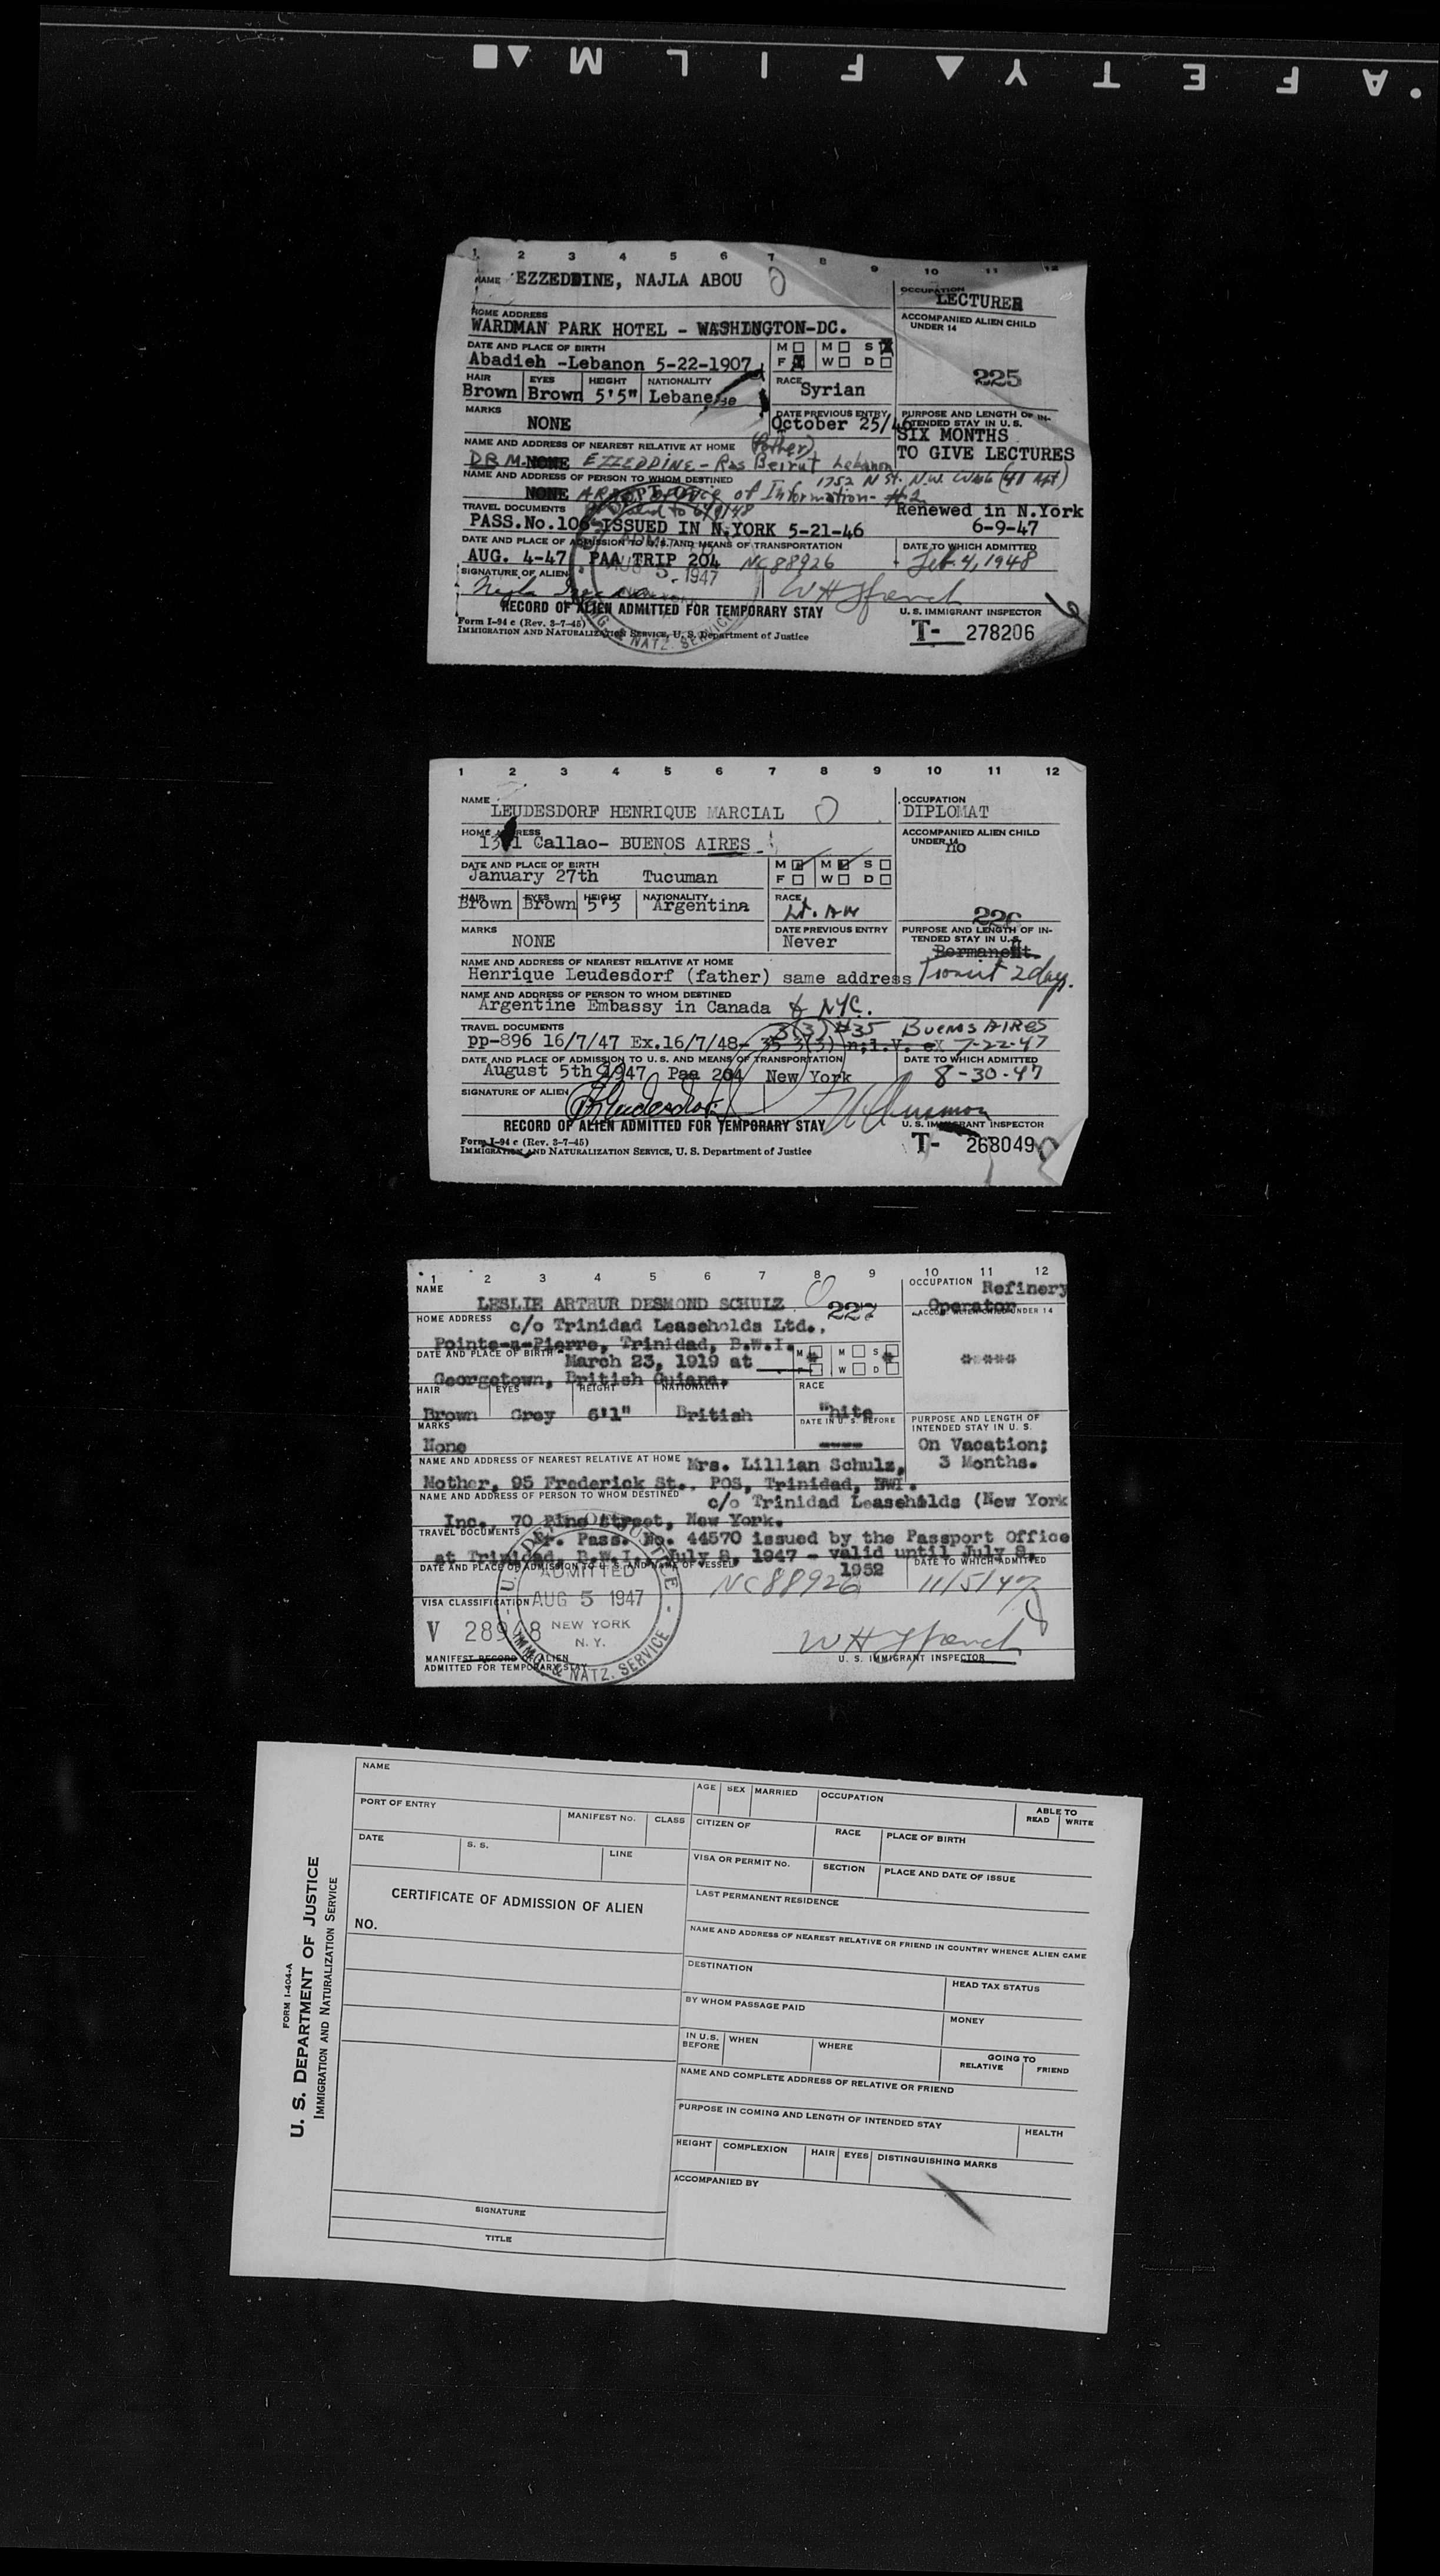 SAFETY FILM
1 2 3 4 5 6 7 8 9 10 11 12
NAME EZZEDDINE, NAJLA ABOU
OCCUPATION LECTURER
HOME ADDRESS
WARDMAN PARK HOTEL - WASHINGTON-DC.
ACCOMPANIED ALIEN CHILD UNDER 14
DATE AND PLACE OF BIRTH
Abadieh -Lebanon 5-22-1907
M M S
F W D
225
HAIR EYES HEIGHT NATIONALITY RACE
Brown Brown 5'5" Lebanese Syrian
MARKS
NONE
DATE PREVIOUS ENTRY
October 25/46
PURPOSE AND LENGTH OF IN-
TENDED STAY IN U. S.
SIX MONTHS
TO GIVE LECTURES
NAME AND ADDRESS OF NEAREST RELATIVE AT HOME (Father)
D B M NONE EZZEDDINE - Ras Beirut Lebanon
NAME AND ADDRESS OF PERSON TO WHOM DESTINED 1752 N St. N.W.
NONE Office of Information - #2
TRAVEL DOCUMENTS valid to 6/9/48
Renewed in N.York
PASS.No.106 ISSUED IN N.YORK 5-21-46 6-9-47
DATE AND PLACE OF ADMISSION TO U. S. AND MEANS OF TRANSPORTATION
DATE TO WHICH ADMITTED
AUG. 4-47 PAA TRIP 204 NC88926 Feb. 4, 1948
ADMITTED
AUG 5 - 1947
SIGNATURE OF ALIEN
W H French
RECORD OF ALIEN ADMITTED FOR TEMPORARY STAY
U. S. IMMIGRANT INSPECTOR
Form I-94 c (Rev. 3-7-45)
IMMIGRATION AND NATURALIZATION SERVICE, U. S. Department of Justice
T- 278206
IMMIG. & NATZ. SERVICE
1 2 3 4 5 6 7 8 9 10 11 12
NAME LEUDESDORF HENRIQUE MARCIAL
OCCUPATION
DIPLOMAT
HOME ADDRESS
Callao- BUENOS AIRES
ACCOMPANIED ALIEN CHILD
UNDER 14 no
DATE AND PLACE OF BIRTH
January 27th Tucuman
M M S
F W D
HAIR EYES HEIGHT NATIONALITY RACE
Brown Brown 5'5 Argentina
226
MARKS
NONE
DATE PREVIOUS ENTRY
Never
PURPOSE AND LENGTH OF IN-
TENDED STAY IN U. S.
Permanent
NAME AND ADDRESS OF NEAREST RELATIVE AT HOME
Henrique Leudesdorf (father) same address Transit 2 days.
NAME AND ADDRESS OF PERSON TO WHOM DESTINED
Argentine Embassy in Canada & NYC.
TRAVEL DOCUMENTS 3(3) #35 BUENOS AIRES
pp-896 16/7/47 Ex.16/7/48- 35 3(3) 7-22-47
DATE AND PLACE OF ADMISSION TO U. S. AND MEANS OF TRANSPORTATION
DATE TO WHICH ADMITTED
August 5th 1947 Paa 204 New York 8-30-47
SIGNATURE OF ALIEN
RECORD OF ALIEN ADMITTED FOR TEMPORARY STAY
U. S. IMMIGRANT INSPECTOR
Form I-94 c (Rev. 3-7-45)
IMMIGRATION AND NATURALIZATION SERVICE, U. S. Department of Justice
T- 268049
1 2 3 4 5 6 7 8 9 10 11 12
NAME
LESLIE ARTHUR DESMOND SCHULZ 227
OCCUPATION Refinery
Operator
ACCOM. ALIEN CHILD UNDER 14
HOME ADDRESS c/o Trinidad Leaseholds Ltd.,
Pointe-a-Pierre, Trinidad, B.W.I.
DATE AND PLACE OF BIRTH March 23, 1919 at
Georgetown, British Guiana.
M M S
F W D
*****
HAIR EYES HEIGHT NATIONALITY RACE
Brown Grey 6'1" British White
MARKS
None
DATE IN U. S. BEFORE
----
PURPOSE AND LENGTH OF
INTENDED STAY IN U. S.
On Vacation;
3 Months.
NAME AND ADDRESS OF NEAREST RELATIVE AT HOME Mrs. Lillian Schulz,
Mother, 95 Frederick St., POS, Trinidad, BWI.
NAME AND ADDRESS OF PERSON TO WHOM DESTINED c/o Trinidad Leaseholds (New York
Inc., 70 Pine Street, New York.
TRAVEL DOCUMENTS Br. Pass. No. 44570 issued by the Passport Office
at Trinidad, B.W.I., July 9, 1947 - valid until July 8,
1952
DATE AND PLACE OF ADMISSION TO U. S. AND NAME OF VESSEL
DATE TO WHICH ADMITTED
NC88926 11/5/47
U. S. DEPT. OF JUSTICE
ADMITTED
AUG 5 1947
NEW YORK
N. Y.
IMMIG. & NATZ. SERVICE
VISA CLASSIFICATION
V 28948
W H French
MANIFEST RECORD OF ALIEN
ADMITTED FOR TEMPORARY STAY
U. S. IMMIGRANT INSPECTOR
FORM I-404-A
U. S. DEPARTMENT OF JUSTICE
IMMIGRATION AND NATURALIZATION SERVICE
NAME
AGE SEX MARRIED OCCUPATION ABLE TO
READ WRITE
PORT OF ENTRY MANIFEST NO. CLASS
CITIZEN OF RACE PLACE OF BIRTH
DATE S. S. LINE
VISA OR PERMIT NO. SECTION PLACE AND DATE OF ISSUE
CERTIFICATE OF ADMISSION OF ALIEN
NO.
LAST PERMANENT RESIDENCE
NAME AND ADDRESS OF NEAREST RELATIVE OR FRIEND IN COUNTRY WHENCE ALIEN CAME
DESTINATION HEAD TAX STATUS
BY WHOM PASSAGE PAID MONEY
IN U.S. BEFORE WHEN WHERE GOING TO
RELATIVE FRIEND
NAME AND COMPLETE ADDRESS OF RELATIVE OR FRIEND
PURPOSE IN COMING AND LENGTH OF INTENDED STAY HEALTH
HEIGHT COMPLEXION HAIR EYES DISTINGUISHING MARKS
ACCOMPANIED BY
SIGNATURE
TITLE